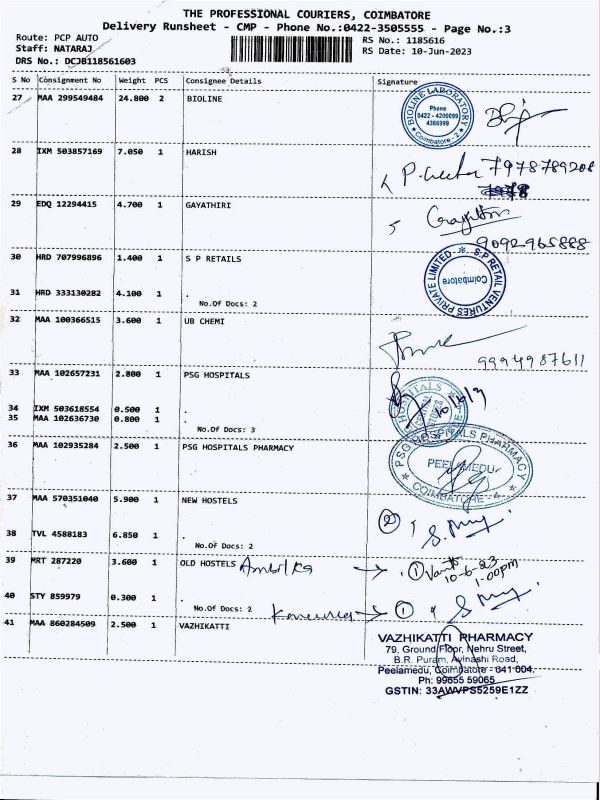 THE PROFESSIONAL COURIERS, COIMBATORE
Delivery Runsheet - CMP - Phone No.:0422-3505555 - Page No.:3
Route: PCP AUTO
Staff: NATARAJ
DRS No.: DCJB118561603
RS No.: 1185616
RS Date: 10-Jun-2023
S No Consignment No Weight PCS Consignee Details Signature
27 MAA 299549484 24.800 2 BIOLINE
BIOLINE LABORATORY
Phone
0422 - 4200099
4366999
Coimbatore - 2
28 IXM 503857169 7.050 1 HARISH
7978789208
29 EDQ 12294415 4.700 1 GAYATHIRI
9092965888
30 HRD 707996896 1.400 1 S P RETAILS
S.P RETAIL VENTURES PRIVATE LIMITED
Coimbatore
31 HRD 333130282 4.100 1 .
No.Of Docs: 2
32 MAA 100366515 3.600 1 UB CHEMI
9994987611
33 MAA 102657231 2.800 1 PSG HOSPITALS
34 IXM 503618554 0.500 1 .
35 MAA 102636730 0.800 1 .
No.Of Docs: 3
36 MAA 102935284 2.500 1 PSG HOSPITALS PHARMACY
PSG HOSPITALS PHARMACY
PEELAMEDU
COIMBATORE - 4
37 MAA 570351040 5.900 1 NEW HOSTELS
2
38 TVL 4588183 6.850 1 .
No.Of Docs: 2
39 MRT 287220 3.600 1 OLD HOSTELS
1
10-6-23
1-00pm
40 STY 859979 0.300 1 .
No.Of Docs: 2
1
41 MAA 860284509 2.500 1 VAZHIKATTI
VAZHIKATTI PHARMACY
79, Ground Floor, Nehru Street,
B.R. Puram, Avinashi Road,
Peelamedu, Coimbatore - 641 004.
Ph: 99655 59065
GSTIN: 33AWVPS5259E1ZZ